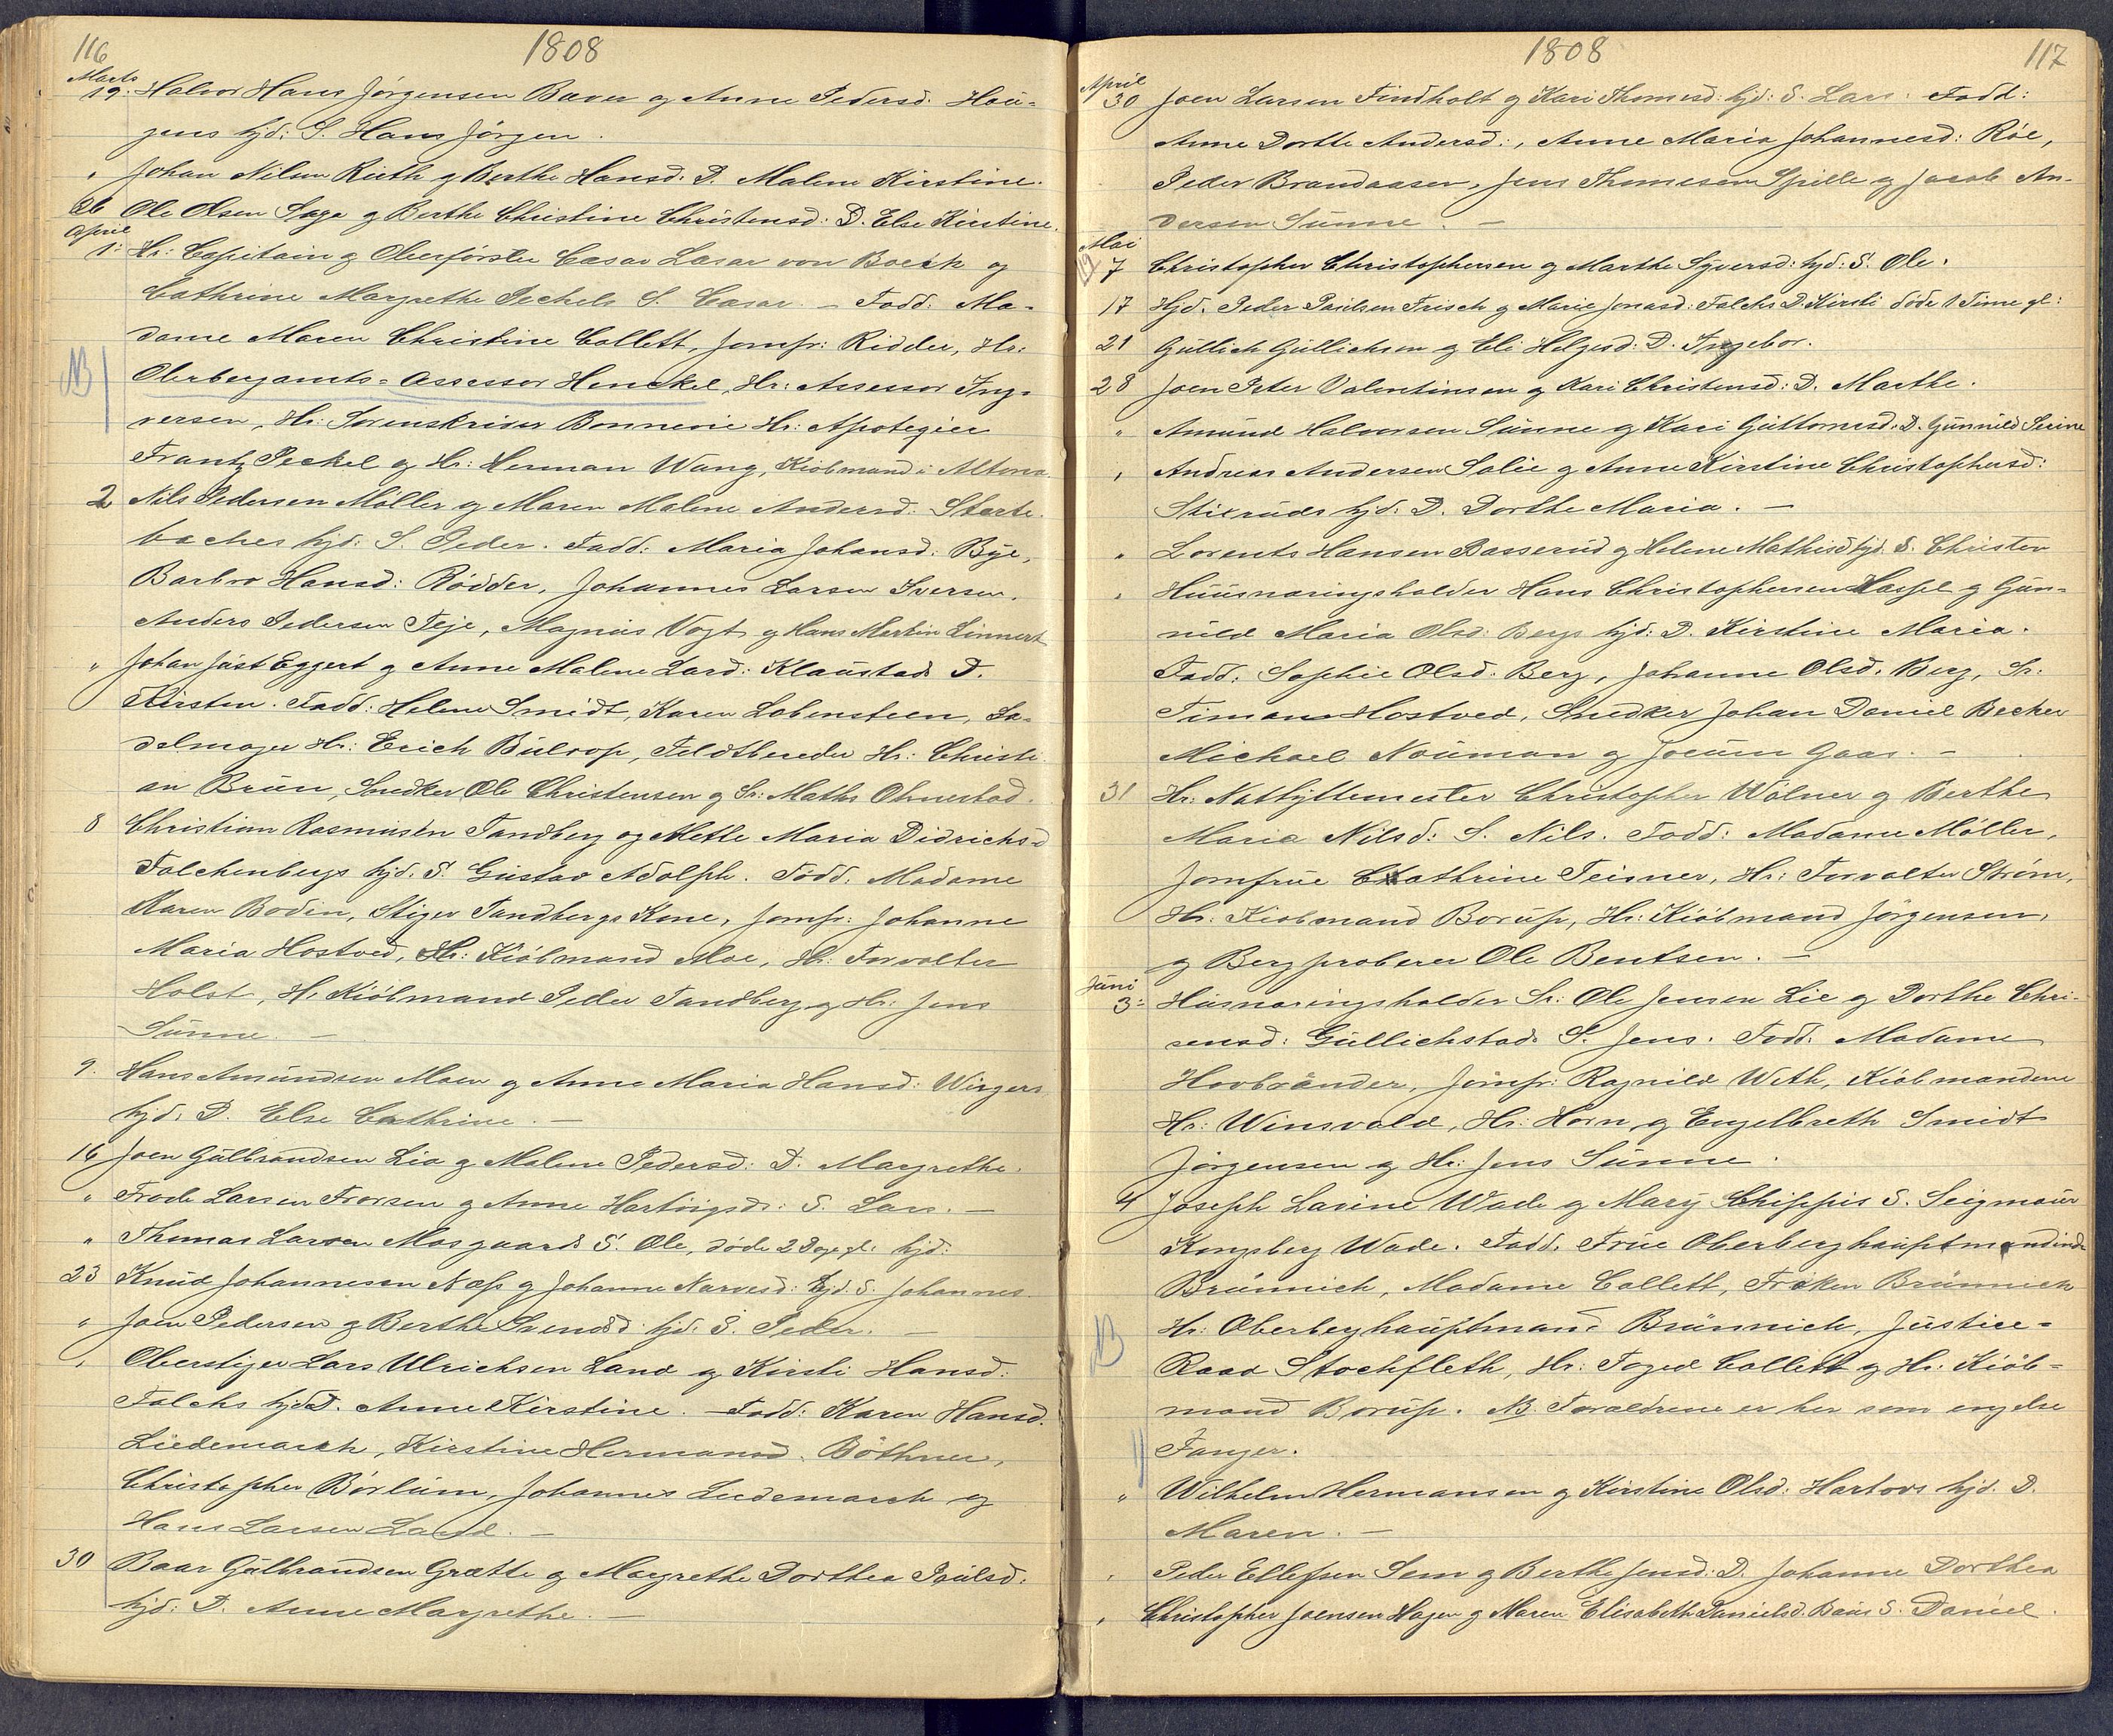 116
1808
Marts
19. Halvor Hans Jörgensen Baver og Anne Pedersd: Hou-
gens hjd: S. Hans Jörgen.
" Johan Nilsen Rieth og Berthe Hansd: D. Malene Kirstine.
26 Ole Olsen Saga og Berthe Christine Christensd: D. Else Kirstine.
April
1: Hr: Capitain og Oberförster Cæsar Læsar von Boeck og
Cathrine Margrethe Peckels S. Cæsar. – Fadd: Ma-
dame Maren Christine Collett, Jomfr: Ridder, Hr:
NB Oberbergamts-Assessor Henckel, Hr: Assessor Ing-
versen, Hr: Sorenskriver Bonnevie Hr: Apotegier
Frantz Peckel og Hr: Herman Wang, Kiöbmand i Altona.
2 Nils Pedersen Möller og Maren Malene Andersd: Starte-
baches hjd: S. Peder. Fadd: Maria Johansd: Bye,
Barbro Hansd: Rödder, Johannes Larsen Iversen,
Anders Pedersen Teje, Magnus Vogt og Hans Martin Linnert
" Johan Just Eggert og Anne Malene Larsd: Klaustads D.
Kirsten. Fadd: Helene Smidt, Karen Lobensteen, Sa-
delmager Hr: Erich Bulrop, Feldtbereder Hr: Christi-
an Bruun, Snedker Ole Christensen og Sr: Maths Ohnestad.
8 Christian Rasmusen Tandberg og Mette Maria Didrichsd
Falchenbergs hjd. S. Gustav Adolph. Fadd: Madame
Karen Bodin, Stiger Tandbergs Kone, Jomfr: Johanne
Maria Hostved, Hr: Kiöbmand Moe, Hr: Forvalter
Holst, Hr Kiöbmand Peder Tandberg og Hr: Jens
Sunne. –
9. Hans Amundsen Moen og Anne Maria Hansd: Wingers
hjd: D. Else Cathrine. –
16 Joen Gulbrandsen Lia og Malene Pedersd: D. Margrethe.
" Frode Larsen Frorsen og Anne Hartvigsd: S. Lars. –
" Thomas Larsen Mosgaards S. Ole, döde 2 Dage gl. hjd:
23 Knud Johannesen Næss og Johanne Narvesd: hjd. S. Johannes.
" Joen Pedersen og Berthe Svendsd: hjd: S. Peder. –
" Oberstiger Lars Ulrichsen Land og Kirsti Hansd:
Falchs hjd D. Anne Kirstine. – Fadd: Karen Hansd:
Liedemarck, Kirstine Hermansd. Böthner,
Christopher Börlum, Johannes Ludemarck og
Hans Larsen Land. –
30 Baar Gulbrandsen Grætte og Margrethe Dorthea Paulsd:
hjd: D. Anne Margrethe. –
1808
117
April
30 Joen Larsen Findholt og Kari Thomesd: hjd: S. Lars. Fadd:
Anne Dorthe Andersd:, Anne Maria Johannesd: Röe,
Peder Brandaasen, Jens Thomesen Spille og Jacob An-
dersen Sunne. –
Mai
7 Christopher Christophersen og Marthe Syversd: hjd: S. Ole.
17 Hjd. Peder Paulsen Frisch og Marie Jonasd: Falchs D. Kirsti döde 1 Time gl:
21 Gullich Gullichsen og Eli Helgesd: D. Ingebor.
28 Joen Peter Valentinsen og Kari Christensd: D. Marthe.
" Amund Halvorsen Sunne og Kari Guttormsd: D. Gunnild Serine
" Andreas Andersen Solie og Anne Kirstine Christophersd:
Stixruds hjd: D. Dorthe Maria. –
" Lorents Hansen Basserud og Helene Mathisd hjd S. Christen
" Huusnaringsholder Hans Christophersen Hassel og Gun-
nild Maria Olsd: Bergs hjd: D. Kirstine Maria.
Fadd: Sophie Olsd: Berg, Johanne Olsd. Berg, Sr:
Timan Hostved, Snedker Johan Daniel Becker
Michael Nouman og Jocum Gaas. –
31 Hr: Nathyttemester Christopher Wølner og Berthe
Maria Nilsd: S. Nils. Fadd: Madame Möller,
Jomfrue Cathrine Teisner, Hr: Forvalter Ström,
Hr: Kiöbmand Borup, Hr: Kiöbmand Jörgensen,
og Bergproberer Ole Bentsen. –
Juni
3: Husnaringsholder Sr: Ole Jensen Lie og Dorthe Chri-
sensd: Gullichstads S. Jens. Fadd. Madame
Hovbrænder, Jomfr: Ragnild Weth, Kiöbmandene
Hr: Winsvold, Hr: Horn, og Engelbreth Smidt
Jörgensen og Hr: Jens Sunne.
4 Joseph Lavine Wade og Mary Chippis S. Seigmour
Kongsberg Wade. Fadd. Frue Oberberghauptmandinde
Brünnich, Madame Collett, Fröken Brünnich
NB Hr: Oberberghauptmand Brünnich, Justice-
Raad Stockfleth, Hr: Foged Collett og Hr. Kiöb-
mand Borup. NB. Forældrene er her som engelse
Fanger.
" Wilhelm Hermansen og Kirstine Olsd: Hartovs hjd. D.
Maren. –
" Peder Ellefsen Sem og Berthe Jensd: D. Johanne Dorthea
" Christopher Joensen Hagen og Maren Elisabeth Danielsd. Baüs S. Daniel.